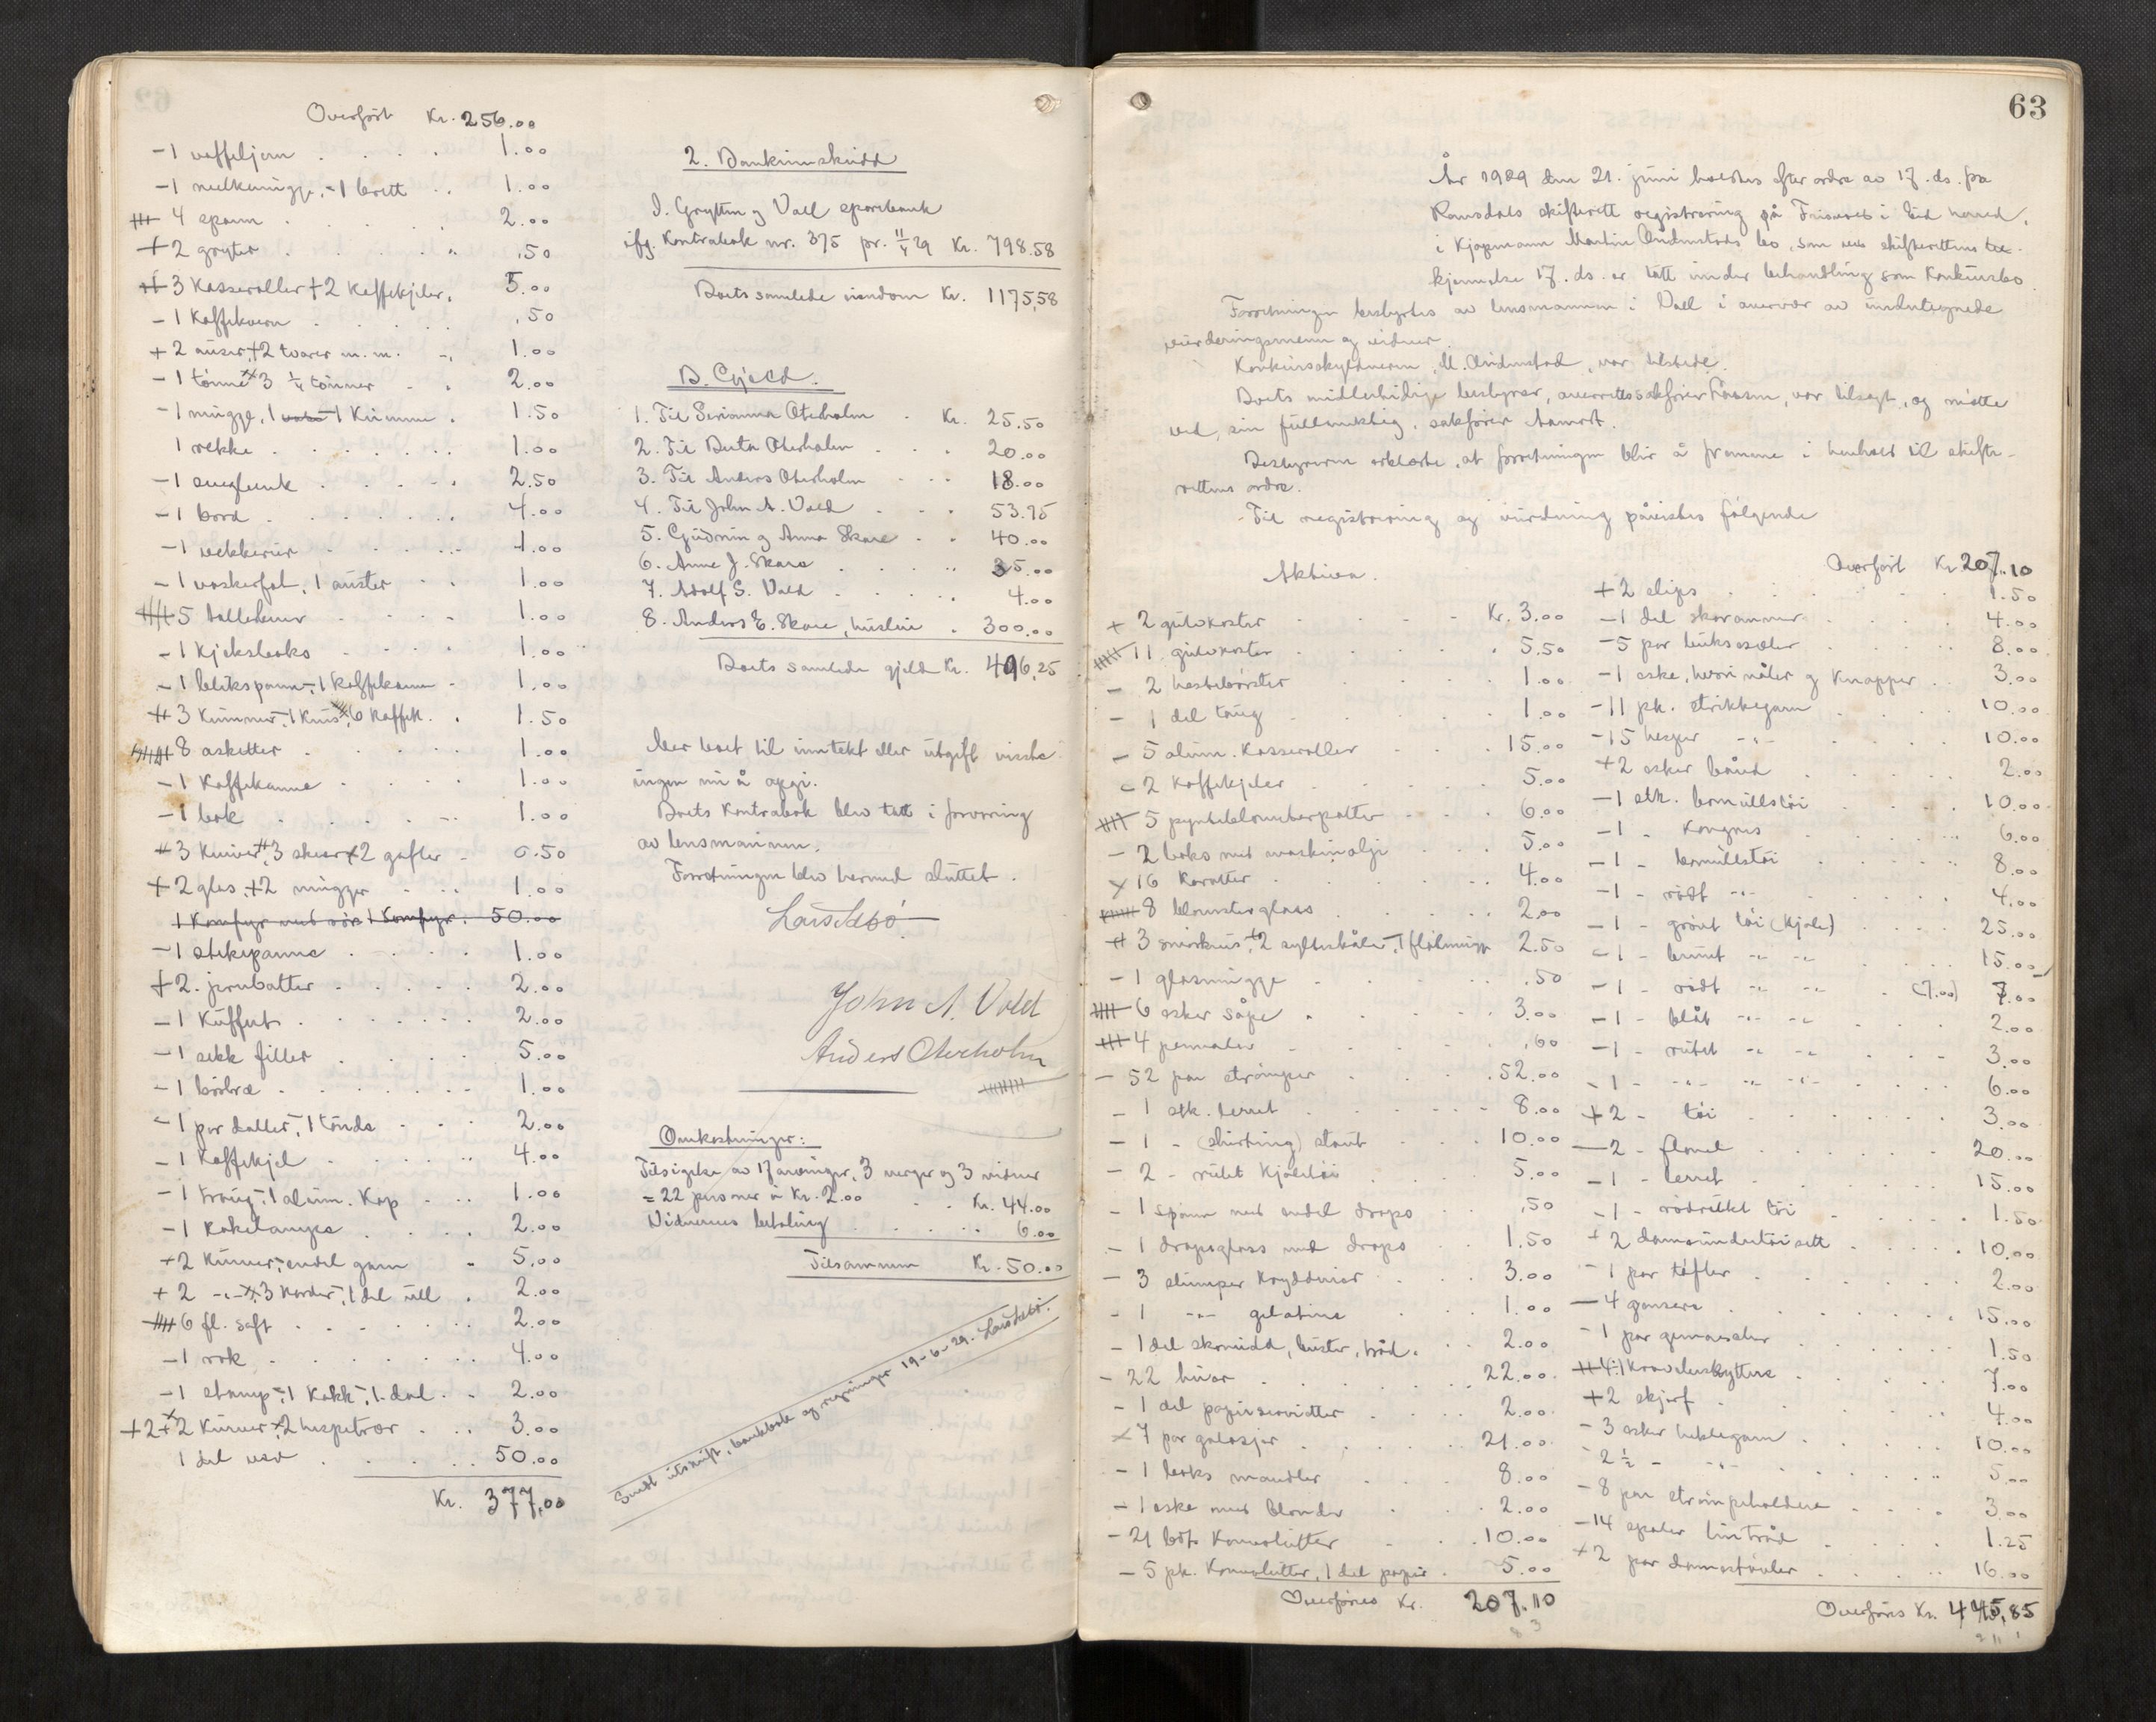 Overført Kr. 256.00
-1 vaffeljern . . . . 1.00
-1 melkemugge, -1 brett . . 1.00
4 spann . . . . 2.00
+2 gryter . . . . .50
3 Kasseroller +2 Kaffekjeler. 5.00
-1 Kaffekvern . . . . .50
+2 auser, +2 tvarer m.m. . . 1.00
-1 tønne 3 1/4 tønner . . 2.00
-1 mugge, 1 1 Kumme . 1.50
1 rekke . . . . 1.00
-1 . . . . 2.50
-1 bord . . . . 4.00
-1 vekkerur . . . . 1.00
-1 vaskefat, 1 . . 1.00
5 tallerkener . . . . 1.00
-1 Kjeksboks . . . . 1.00
-1 blikspann, -1 kaffekanne . 1.00
3 Kummer, -1 Krus, 6 Kaffek. . 1.50
8 asketter . . . . 1.00
-1 Kaffekanne . . . . 1.00
-1 bok . . . . 1.00
3 Kniver, 3 skeer +2 gafler . 0.50
+2 glas, +2 mugger . . 1.00
1 Komfyr med rör 1 Komfyr. 50.00
-1 stekepanne . . . . 1.00
+2 jernbøtter . . . . 2.00
-1 Kuffert . . . . 2.00
-1 sekk filler . . . . 5.00
-1 . . . . 1.00
-1 par baller, 1 tønde . . 2.00
-1 Kaffekjel . . . . 4.00
-1 traug, -1 alum. Kop . . 1.00
-1 . . . . 2.00
+2 Kurver, endel garn . 5.00
+2 -"- 3 Karder, 1 del ull . 2.00
6 fl. saft . . . . 2.00
-1 rok . . . . 4.00
-1 stamp, -1 Kakk, 1 del . . 2.00
+2+2 Kurver, 2 hespetrær . . 3.00
1 del ved . . . . 50.00
Kr. 377,00
2. Bankinnskudd
I. Grytten og Voll sparebank
ifg. Kontrabok nr. 375 pr. 11/5 29 Kr. 798.58
Boets samlede eiendom Kr. 1175,58
B. Gjeld.
1. Til Oterholm . Kr. 25.50
2. Til Berta Oterholm . . . 20.00
3. Til Anders Oterholm . . . 18.00
4. Til John A. Vold . . . 53.75
5. Gudrun og Anna Skare . . 40.00
6. Anne J. Skare . . . . 35.00
7. Adolf S. Vold . . . . 4.00
8. Anders E. Skare, husleie . 300.00
Boets samlede gjeld Kr. 496,25
Mer boet til inntekt eller utgift visste
ingen nu å opgi.
Boets Kontrabok blev tatt i forvaring
av lensmannen.
Forretningen blev hermed sluttet.
Lars Sebø
John A. Vold
Anders Oterholm
Omkostninger:
Tilsigelse av 17 arvinger, 3 verger og 3 vidner
= 22 personer à Kr. 2.00 . . Kr. 44.00
Vidnenes betaling . . . . 6.00
Tilsammen Kr. 50.00
Sendt utskrift, bankbok og regninger 19-6-29. Lars Sebø.
63
År 1929 den 21. juni holdtes efter ordre av 17. ds. fra
Romsdals skifterett registrering på i Eid herred,
i Kjøpmann Martin bo, som ved skifterettens
kjennelse 17. ds. er tatt under behandling som konkursbo.
Forretningen bestyrtes av lensmannen i Voll i overvær av undertegnede
vurderingsmenn og vidner.
Konkursskyldneren, M. , var tilstede.
Boets midlertidige bestyrer, overrettssakfører , var tilsagt, og møtte
ved sin fullmektig, sakfører .
Bestyreren erklærte, at forretningen blir å fremme i henhold til skifte-
rettens ordre.
Til registrering og vurdering påvistes følgende
Aktiva.
+ 2 gulvkoster . . . . Kr. 3.00
11 gulvkoster . . . . 5.50
- 2 hestebørster . . . . 1.00
- 1 del taug . . . . 1.00
- 5 alum. Kasseroller . . . 15.00
- 2 Kaffekjeler . . . . 5.00
5 pynteblomsterpotter . . . 6.00
- 2 boks med maskinolje . . . 5.00
16 Karafter . . . . 4.00
8 blomsterglass . . . . 2.00
3 smørkrus, +2 syltekåler, -1 fløtemugge 2.50
- 1 glasmugge . . . . .50
6 esker såpe . . . . 3.00
4 pennaler . . . . .60
- 52 par strømper . . . . 52.00
- 1 stk. lerret . . . . 8.00
- 1 - (shirting) stout . . . 10.00
- 2 - rutet Kjoletøi . . . . 5.00
- 1 spann med endel drops . . .50
- 1 dropsglass med drops . . 1.50
- 3 slumper Krydderier . . . 3.00
- 1 -"- gelatine . . . 1.00
- 1 del skomidd, børster, tråd. . . 2.00
- 22 luer . . . . 22.00
- 1 del papirservietter . . . 2.00
7 par galosjer . . . . 21.00
- 1 boks mandler . . . 8.00
- 1 eske med blonder . . . 2.00
- 21 Konvolutter . . . 10.00
- 5 pk. Konvolutter, 1 del papir . 5.00
Overføres Kr. 207.10
Overført Kr. 207.10
+2 slips . . . . 1.50
-1 del skoranner . . . . 4.00
-5 par bukseseler . . . . 8.00
-1 eske, hvori nåler og Knapper . . 3.00
-11 pk. strikkegarn . . . . 10.00
-15 hesper -"- . . . . 10.00
+2 esker bånd . . . . 2.00
-1 stk. bomullstøi . . . . 10.00
-1 - Kongress . . . . 6.00
-1 - bomullstøi . . . . 8.00
-1 - rødt -"- . . . . 4.00
-1 - grønt tøi (Kjole) . . . . 25.00
-1 - brunt -"- -"- . . . . 15.00
-1 - rødt -"- -"- . (7.00) 7.00
-1 - blåt -"- -"- . . . 2.00
-1 - rutet -"- -"- . . . 3.00
-1 - -"- -"- -"- . . . . 6.00
+2 - tøi . . . . 3.00
-2 - flonel . . . . 20.00
-1 - lerret . . . . 15.00
-1 - rødrutet tøi . . . . 1.50
+2 dameundertøisett . . . . 10.00
-1 par tøfler . . . . 2.00
-4 gensere . . . . 15.00
-1 par gummisåler . . . . 1.50
4 . . . . 7.00
+2 skjerf . . . . 4.00
-3 esker heklegarn . . . . 10.00
2 1/2 - -"- . . . . 5.00
-8 par strømpeholdere . . . . 3.00
-14 sneler lintråd . . . . 1.25
+2 par damestøvler . . . . 16.00
Overføres Kr. 445,85